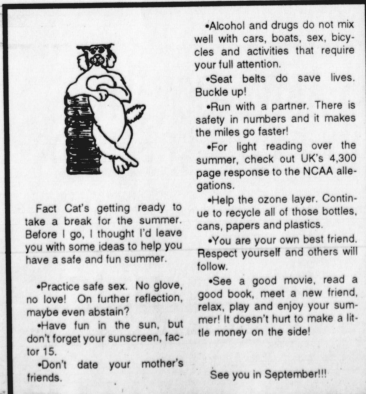 Fact Cat's getting ready to
take a break for the summer.
Before I go, I thought I'd leave
you with some ideas to help you
have a safe and fun summer.
•Practice safe sex. No glove,
no love! On further reflection,
maybe even abstain?
•Have fun in the sun, but
don't forget your sunscreen, fac-
tor 15.
•Don't date your mother's
friends.
•Alcohol and drugs do not mix
well with cars, boats, sex, bicy-
cles and activities that require
your full attention.
•Seat belts do save lives.
Buckle up!
•Run with a partner. There is
safety in numbers and it makes
the miles go faster!
•For light reading over the
summer, check out UK's 4,300
page response to the NCAA alle-
gations.
•Help the ozone layer. Contin-
ue to recycle all of those bottles,
cans, papers and plastics.
•You are your own best friend.
Respect yourself and others will
follow.
•See a good movie, read a
good book, meet a new friend,
relax, play and enjoy your sum-
mer! It doesn't hurt to make a lit-
tle money on the side!
See you in September!!!